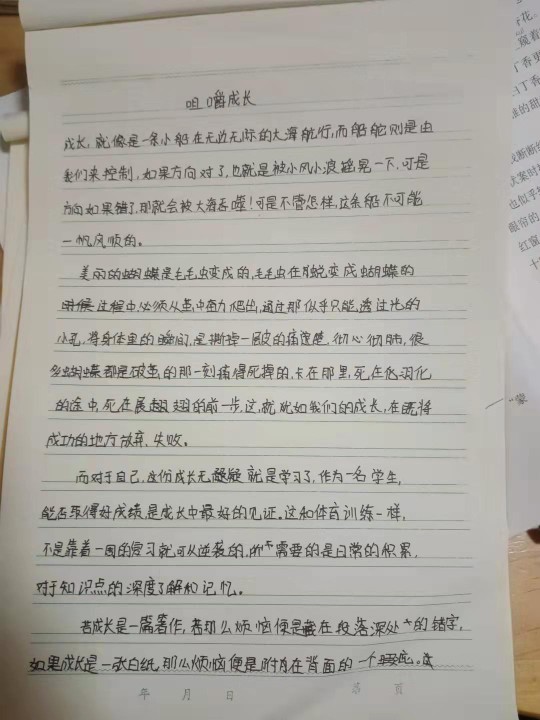 咀嚼成长
成长，就像是一条小船在无边无际的大海航行，而船舵则是由
我们来控制，如果方向对了，也就是被小风小浪摇晃一下，可是
方向如果错了，那就会被大海吞噬！可是不管怎样，这条船不可能
一帆风顺的。
美丽的蝴蝶是毛毛虫变成的，毛毛虫在蜕变成蝴蝶的
时候过程中必须从茧中奋力爬出，通过那似乎只能透过光的
小孔，将身体里的瞬间，是撕掉一层皮的痛楚，彻心彻肺，很
多蝴蝶都是破茧的那一刻痛得死掉的，卡在那里，死在化羽化
的途中，死在展翅翅的前一步，这，就犹如我们的成长，在既将
成功的地方放弃、失败。
而对于自己，这份成长无疑疑就是学习了，作为一名学生，
能否取得好成绩是成长中最好的见证。这和体育训练一样，
不是靠着一周的复习就可从逆袭的，所需要的是日常的积累，
对于知识点的深度了解和记忆。
若成长是一篇著作，那么烦恼便是藏在段落深处的错字，
如果成长是一张白纸，那么烦恼便是附在背面的一个
年 月 日 第 页
花。
窥着
丁香
的甜
断断
也似乎
眼帘的
红窗
十
"蒙